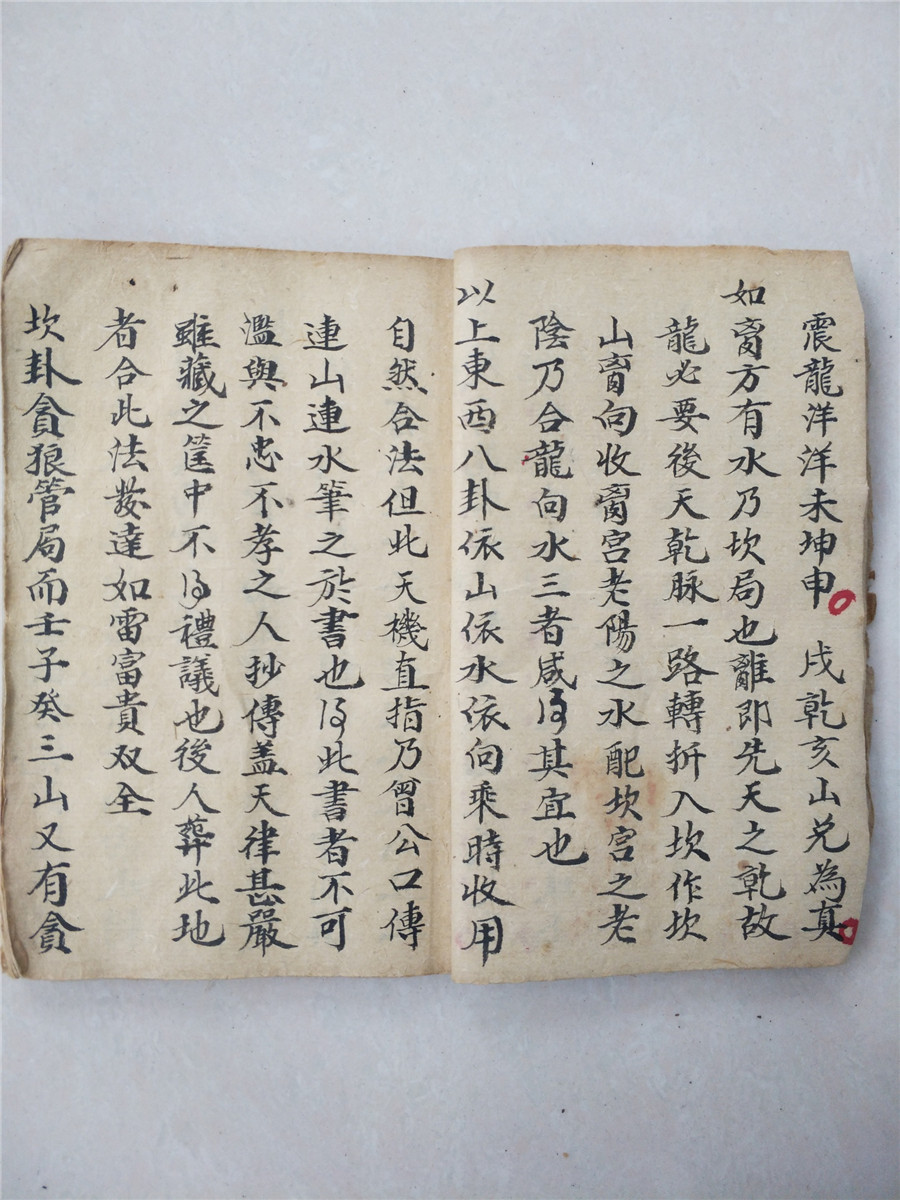 震龍洋洋未坤申 戌乾亥山兑為真
如离方有水乃坎局也離即先天之乾故
龍必要後天乾脉一路轉折入坎作坎
山离向收离宫老陽之水配坎宫之老
陰乃合龍向水三者咸得其宜也
以上東西八卦依山依水依向乘時收用
自然合法但此天機直指乃曾公口傳
連山連水筆之於書也得此書者不可
濫與不忠不孝之人抄傳盖天律甚嚴
雖藏之筐中不得禮議也後人葬此地
者合此法發達如雷富貴双全
坎卦貪狼管局而壬子癸三山又有貪